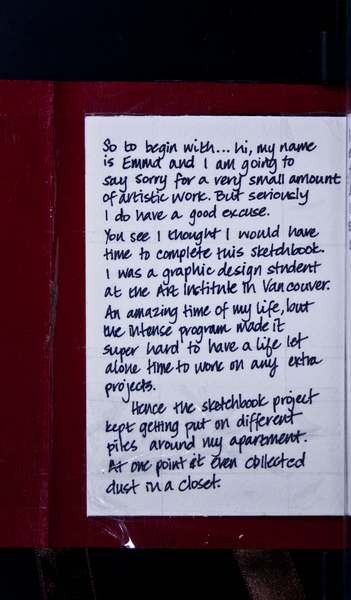 So to begin with... hi, my name
is Emma and I am going to
say sorry for a very small amount
of artistic work. But seriously
I do have a good excuse.
You see I thought I would have
time to complete this sketchbook.
I was a graphic design student
at the Art Institute in Vancouver.
An amazing time of my life, but
the intense program made it
super hard to have a life let
alone time to work on any extra
projects.
Hence the sketchbook project
kept getting put on different
piles around my apartment.
At one point it even collected
dust in a closet.